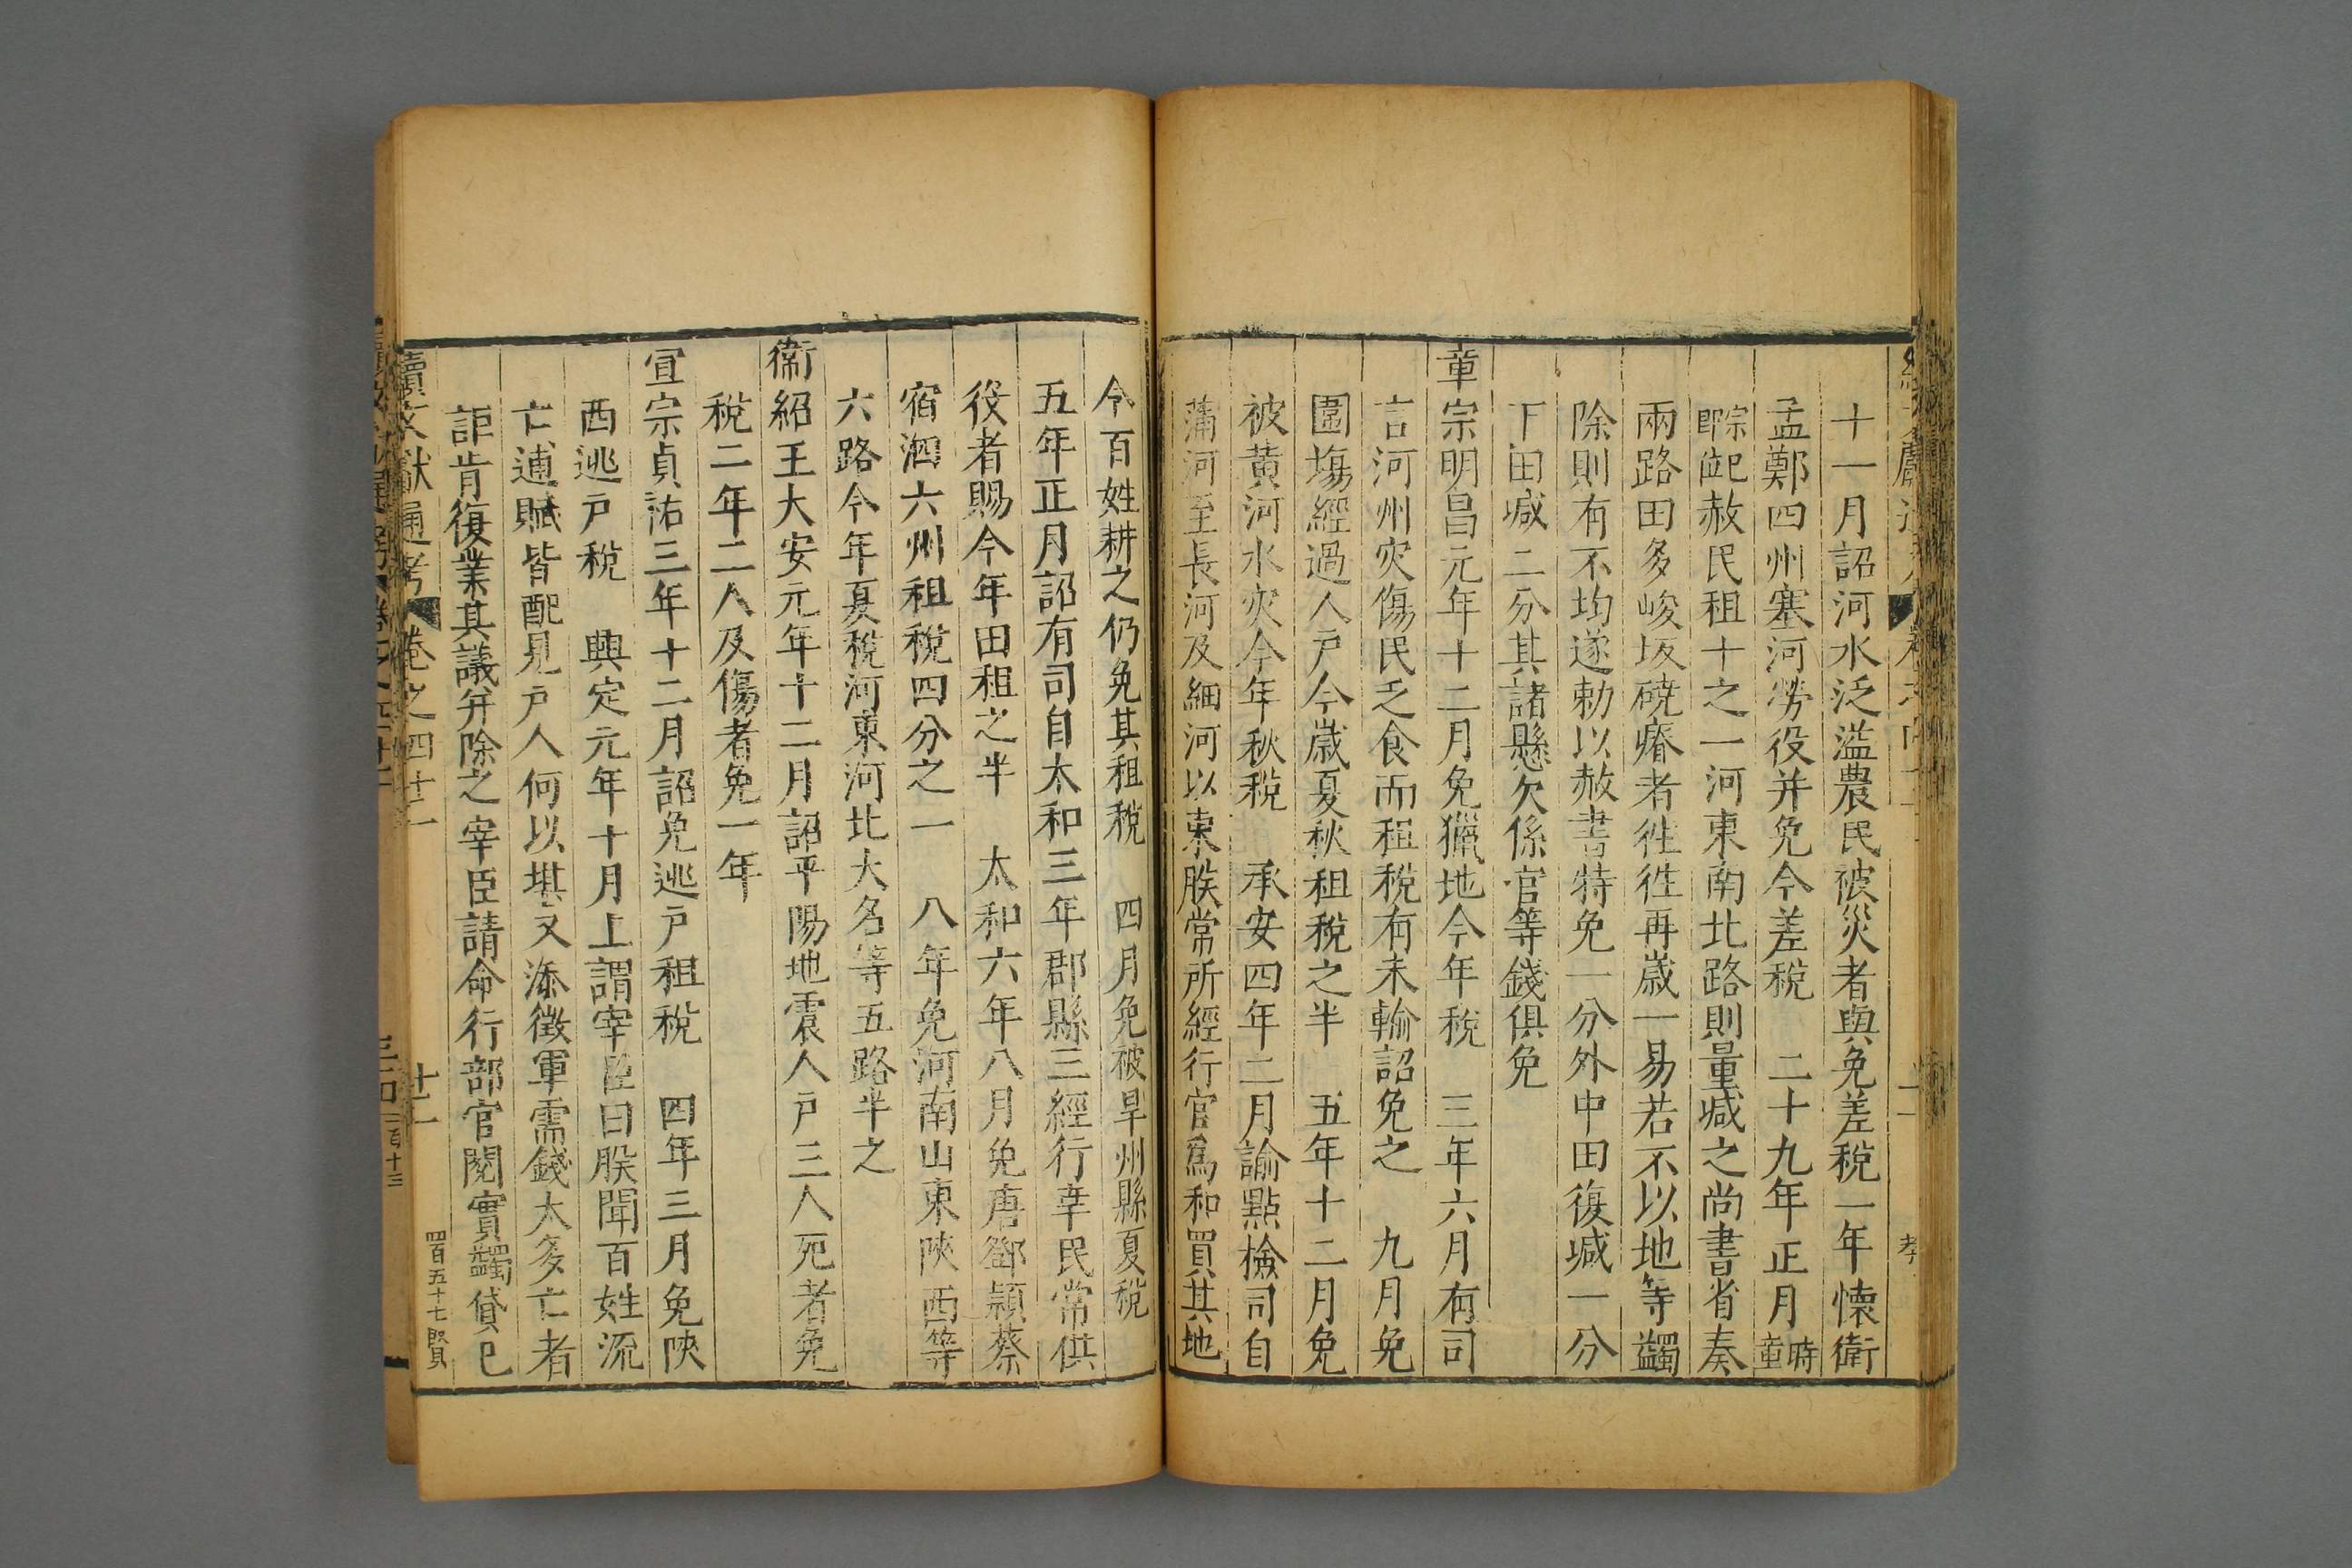 十一月詔河水泛濫農民被災者與免差稅一年懷衛
孟鄭四州塞河勞役并免今差稅　二十九年正月時章
宗即位赦民租十之一河東南北路則量減之尚書省奏
兩路田多峻坂磽瘠者徃徃再歲一易若不以地等蠲
除則有不均遂勅以赦書特免一分外中田復減一分
下田減二分其諸懸欠係官等錢俱免
章宗明昌元年十二月免獵地今年稅　三年六月有司
言河州灾傷民乏食而租稅有未輸詔免之　九月免
圍塲經過人戶今歲夏秋租稅之半　五年十二月免
被黃河水灾今年秋稅　承安四年二月諭點檢司自
蒲河至長河及細河以東朕常所經行官爲和買其地
令百姓耕之仍免其租稅　四月免被旱州縣夏稅
五年正月詔有司自太和三年郡縣三經行幸民常供
役者賜今年田租之半　太和六年八月免唐鄧潁蔡
宿泗六州租稅四分之一　八年免河南山東陝西等
六路今年夏稅河東河北大名等五路半之
衞紹王大安元年十二月詔平陽地震人戶三人死者免
稅二年二人及傷者免一年
宣宗貞祐三年十二月詔免逃戶租稅　四年三月免陝
西逃戶稅　興定元年十月上謂宰臣曰朕聞百姓流
亡逋賦皆配見戶人何以堪又添徵軍需錢太多亡者
詎肯復業其議并除之宰臣請命行部官閱實蠲貸已
續文獻通考　卷之四十二　十二　四百五十七　賢